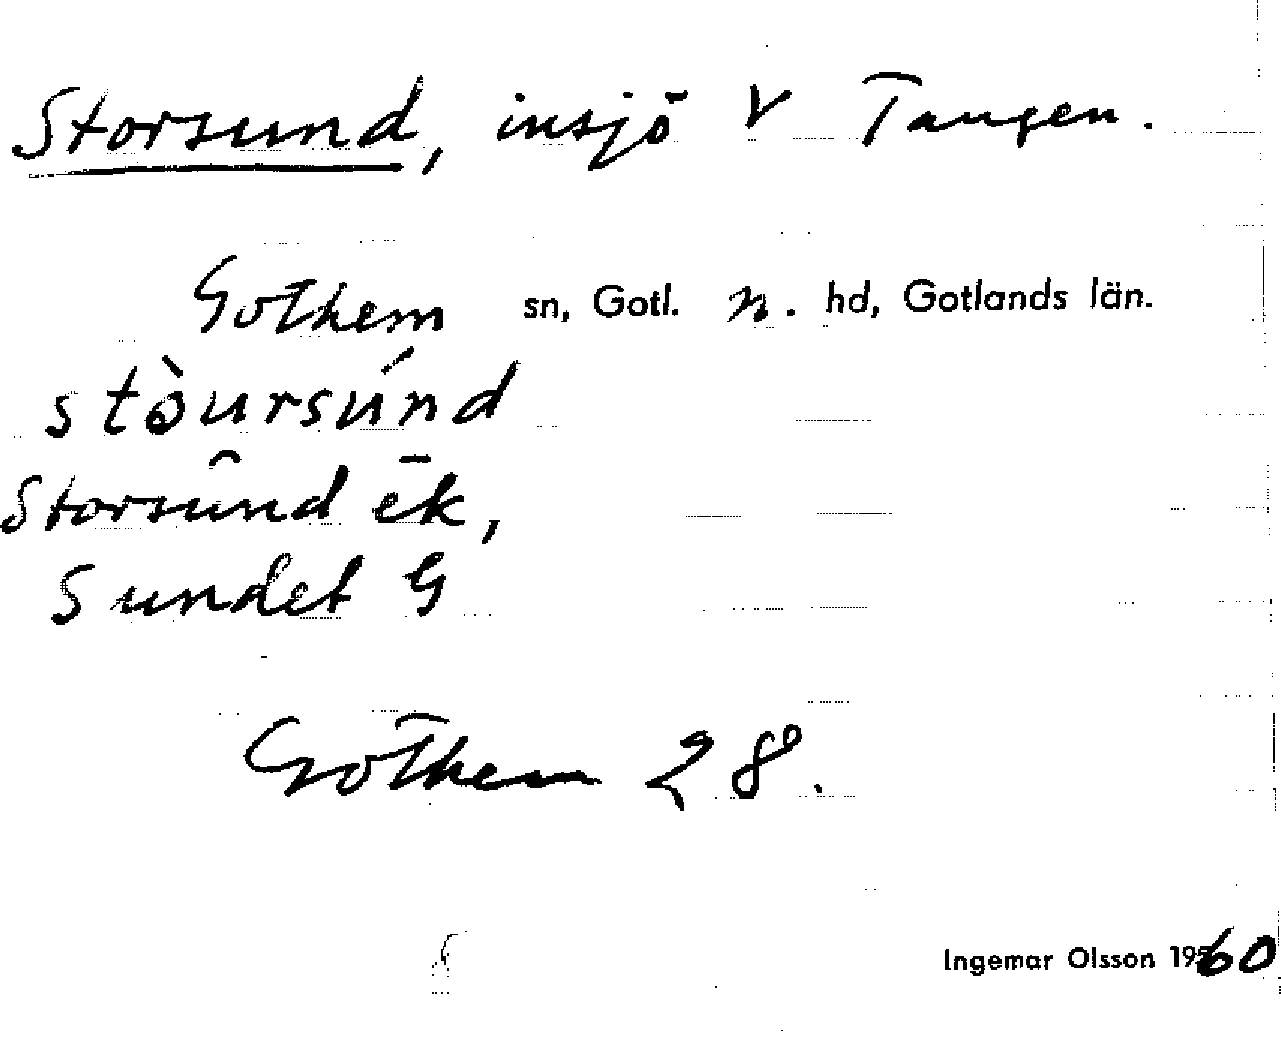 Storsund, insjö V Tangen.
Gothem sn, Gotl. n. hd, Gotlands län.
stòursúnd
Storsund ek,
Sundet G
Gothem 28.
Ingemar Olsson 1960